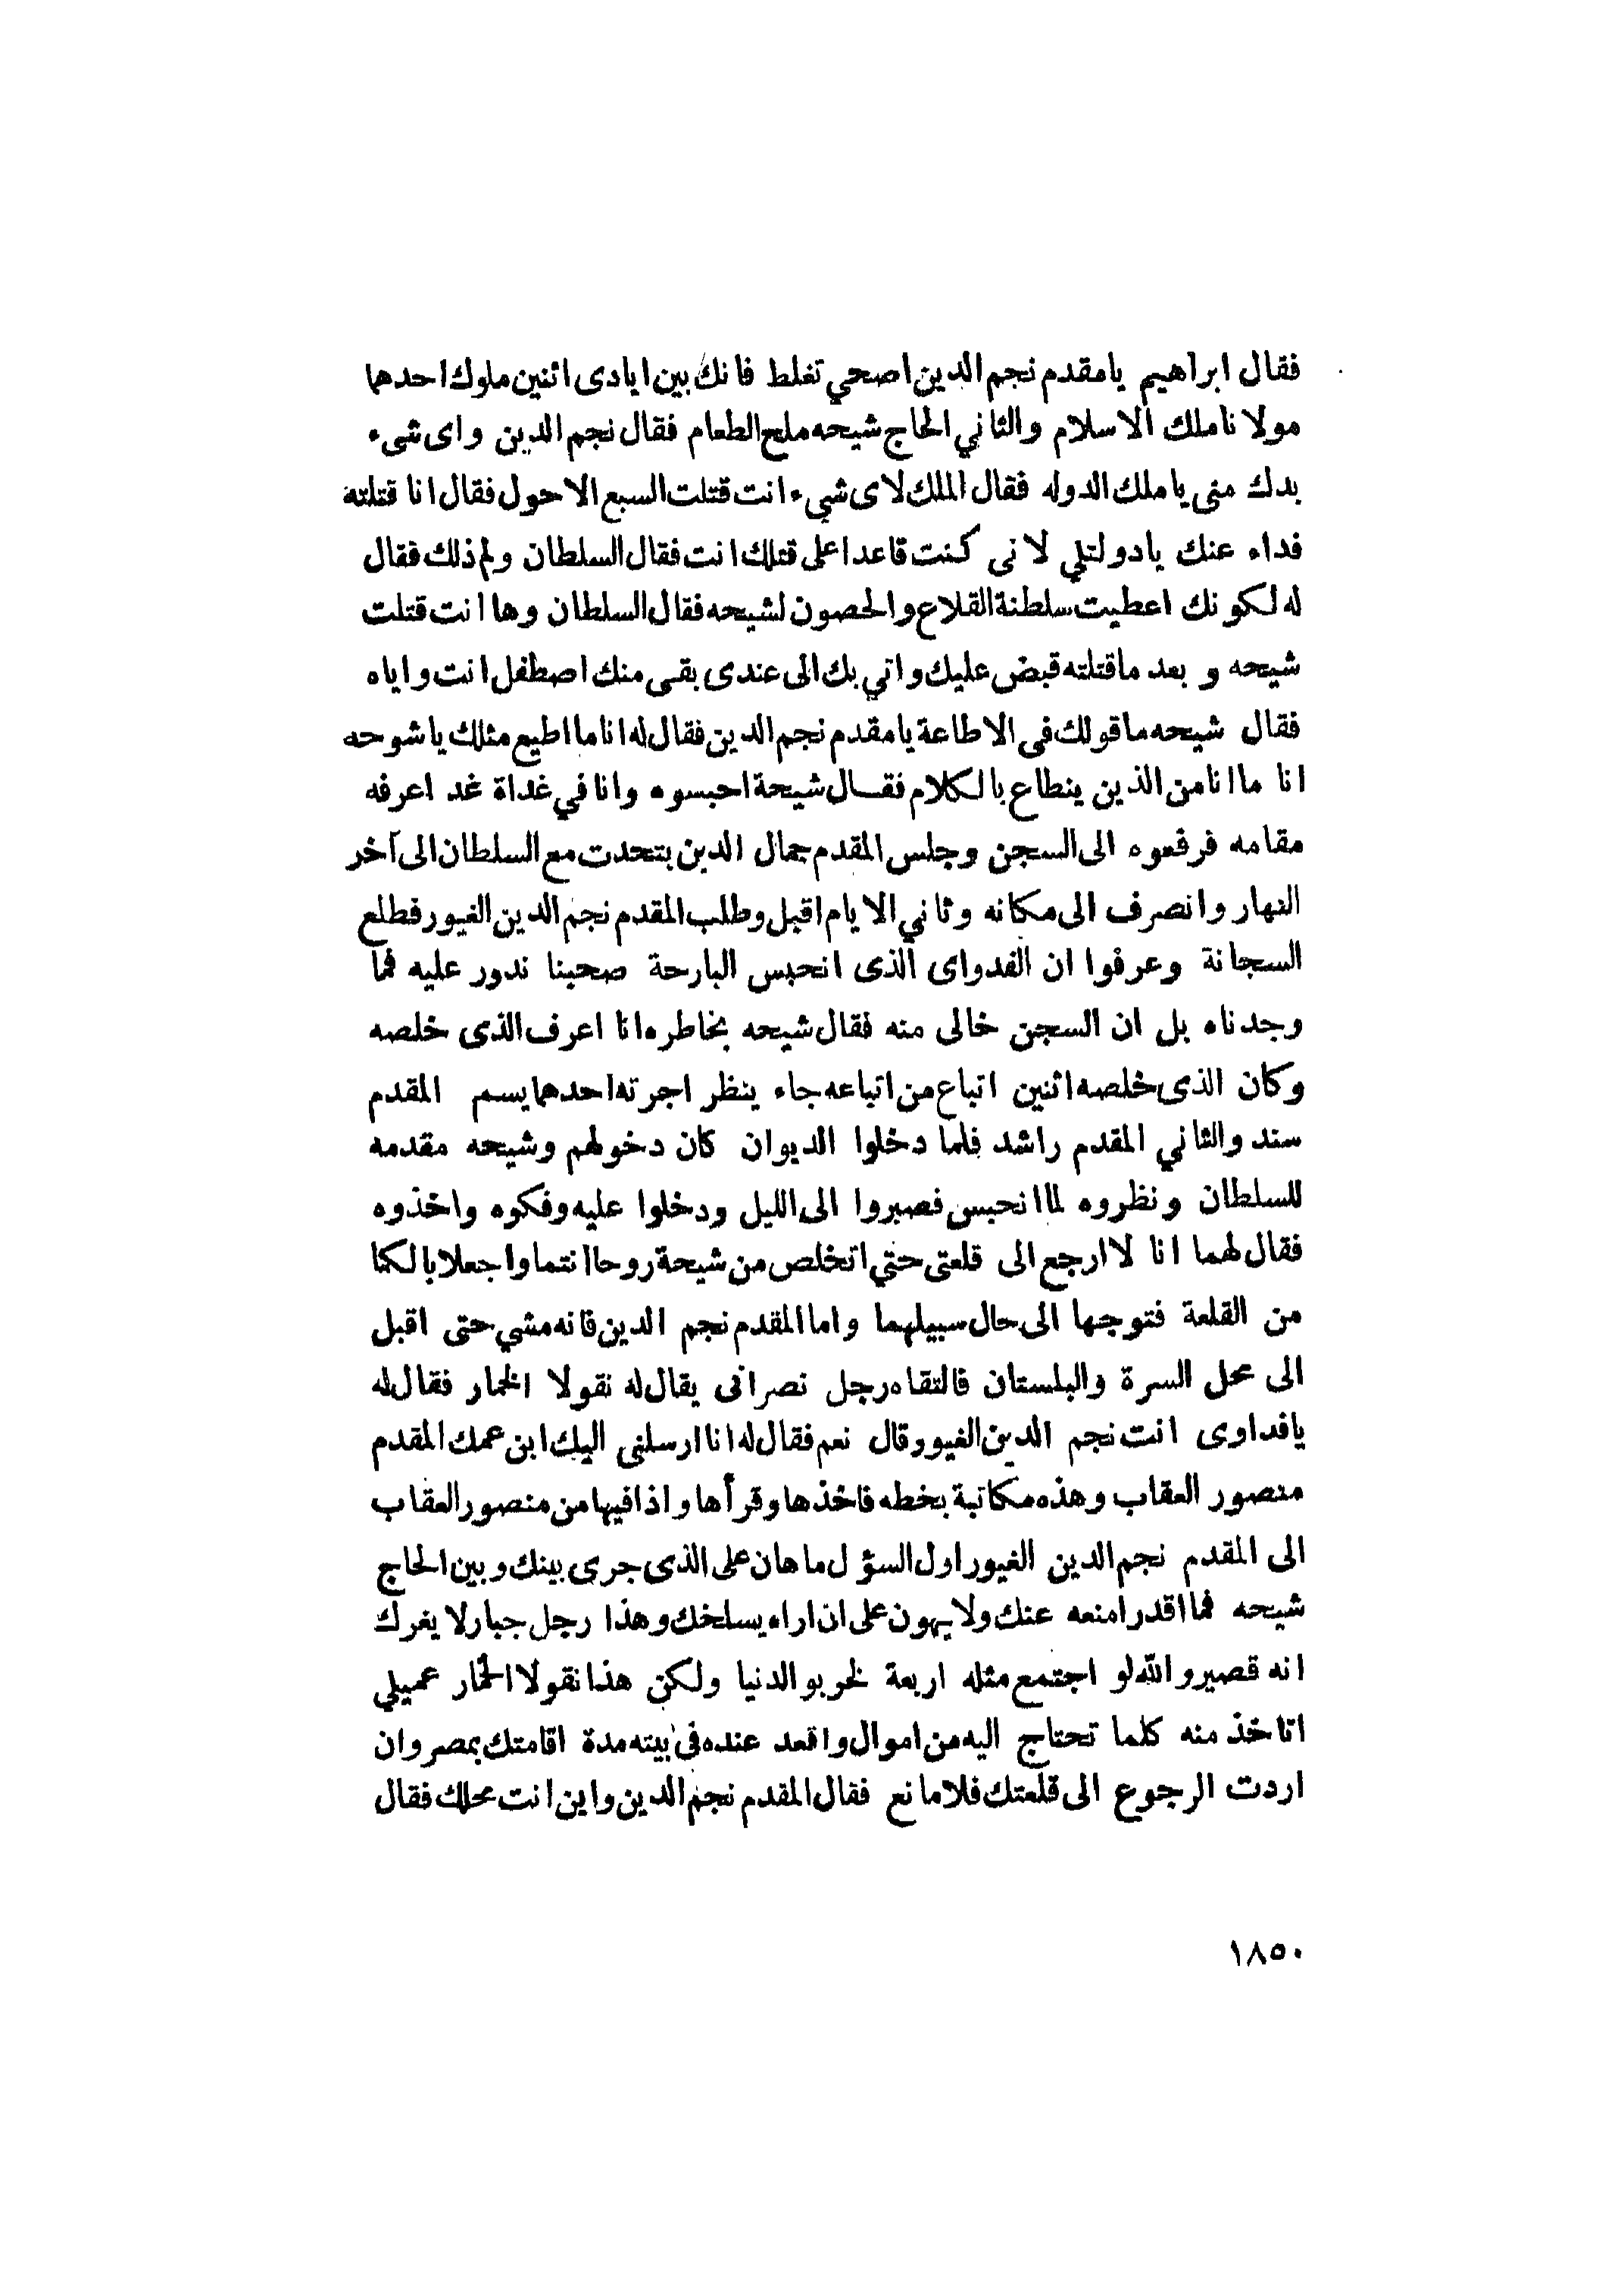 فقال ابراهيم يامقدم نجم الدين اصحي تغلط فانك بين ايادى اثنين ملوك احدهما
مولاناملك الاسلام والثاني الحاج شيحه ملح الطعام فقال نجم الدين واى شىء
بدك منى ياملك الدوله فقال الملك لاى شيء انت قتلت السبع الاحول فقال انا قتلته
فداء عنك يادولتلي لانى كنت قاعدا على قتلك انت فقال السلطان ولم ذلك فقال
له لكونك اعطيت سلطنة القلاع والحصون لشيحه فقال السلطان وها انت قتلت
شيحه و بعد ماقتلته قبض عليك واتي بك الى عندى بقى منك اصطفل انت واياه
فقال شيحه ماقولك فى الاطاعة يامقدم نجم الدين فقال له انا ما اطيع مثلك ياشوحه
انا ما انا من الذين ينطاع بالكلام فقال شيحة احبسوه وانا في غداة غد اعرفه
مقامه فرفعوه الى السجن وجلس المقدم جمال الدين بتحدت مع السلطان الى آخر
النهار وانصرف الى مكانه وثاني الايام اقبل وطلب المقدم نجم الدين الغيور فطلع
السجانة وعرفوا ان الفدواى الذى انحبس البارحة صحينا ندور عليه فما
وجدناه بل ان السجن خالى منه فقال شيحه بخاطره انا اعرف الذى خلصه
وكان الذى خلصه اثنين اتباع من اتباعه جاء ينظر اجرته احدهما يسم المقدم
سند والثاني المقدم راشد فلما دخلوا الديوان كان دخولهم وشيحه مقدمه
للسلطان ونظروه لما انحبس فصبروا الى الليل ودخلوا عليه وفكوه واخذوه
فقال لهما انا لا ارجع الى قلعتى حتي اتخلص من شيحة روحا انتما واجعلا بالكما
من القلعة فتوجها الى حال سبيلهما واما المقدم نجم الدين فانه مشي حتى اقبل
الى محل السرة والبلستان فالتقاه رجل نصرانى يقال له نقولا الخمار فقال له
يافداوى انت نجم الدين الغيور قال نعم فقال له انا ارسلنى اليك ابن عمك المقدم
منصور العقاب وهذه مكاتبة بخطه فاخذها وقرأها واذا فيها من منصور العقاب
الى المقدم نجم الدين الغيور اول السؤل ما هان على الذى جرى بينك وبين الحاج
شيحه فما اقدر امنعه عنك ولا يهون على ان اراه يسلخك وهذا رجل جبار لا يغرك
انه قصير والله لو اجتمع مثله اربعة لخربو الدنيا ولكن هذا نقولا الخمار عميلي
اتاخذ منه كلما تحتاج اليه من اموال واقعد عنده فى بيته مدة اقامتك بمصر وان
اردت الرجوع الى قلعتك فلا مانع فقال المقدم نجم الدين واين انت محلك فقال
١٨٥٠